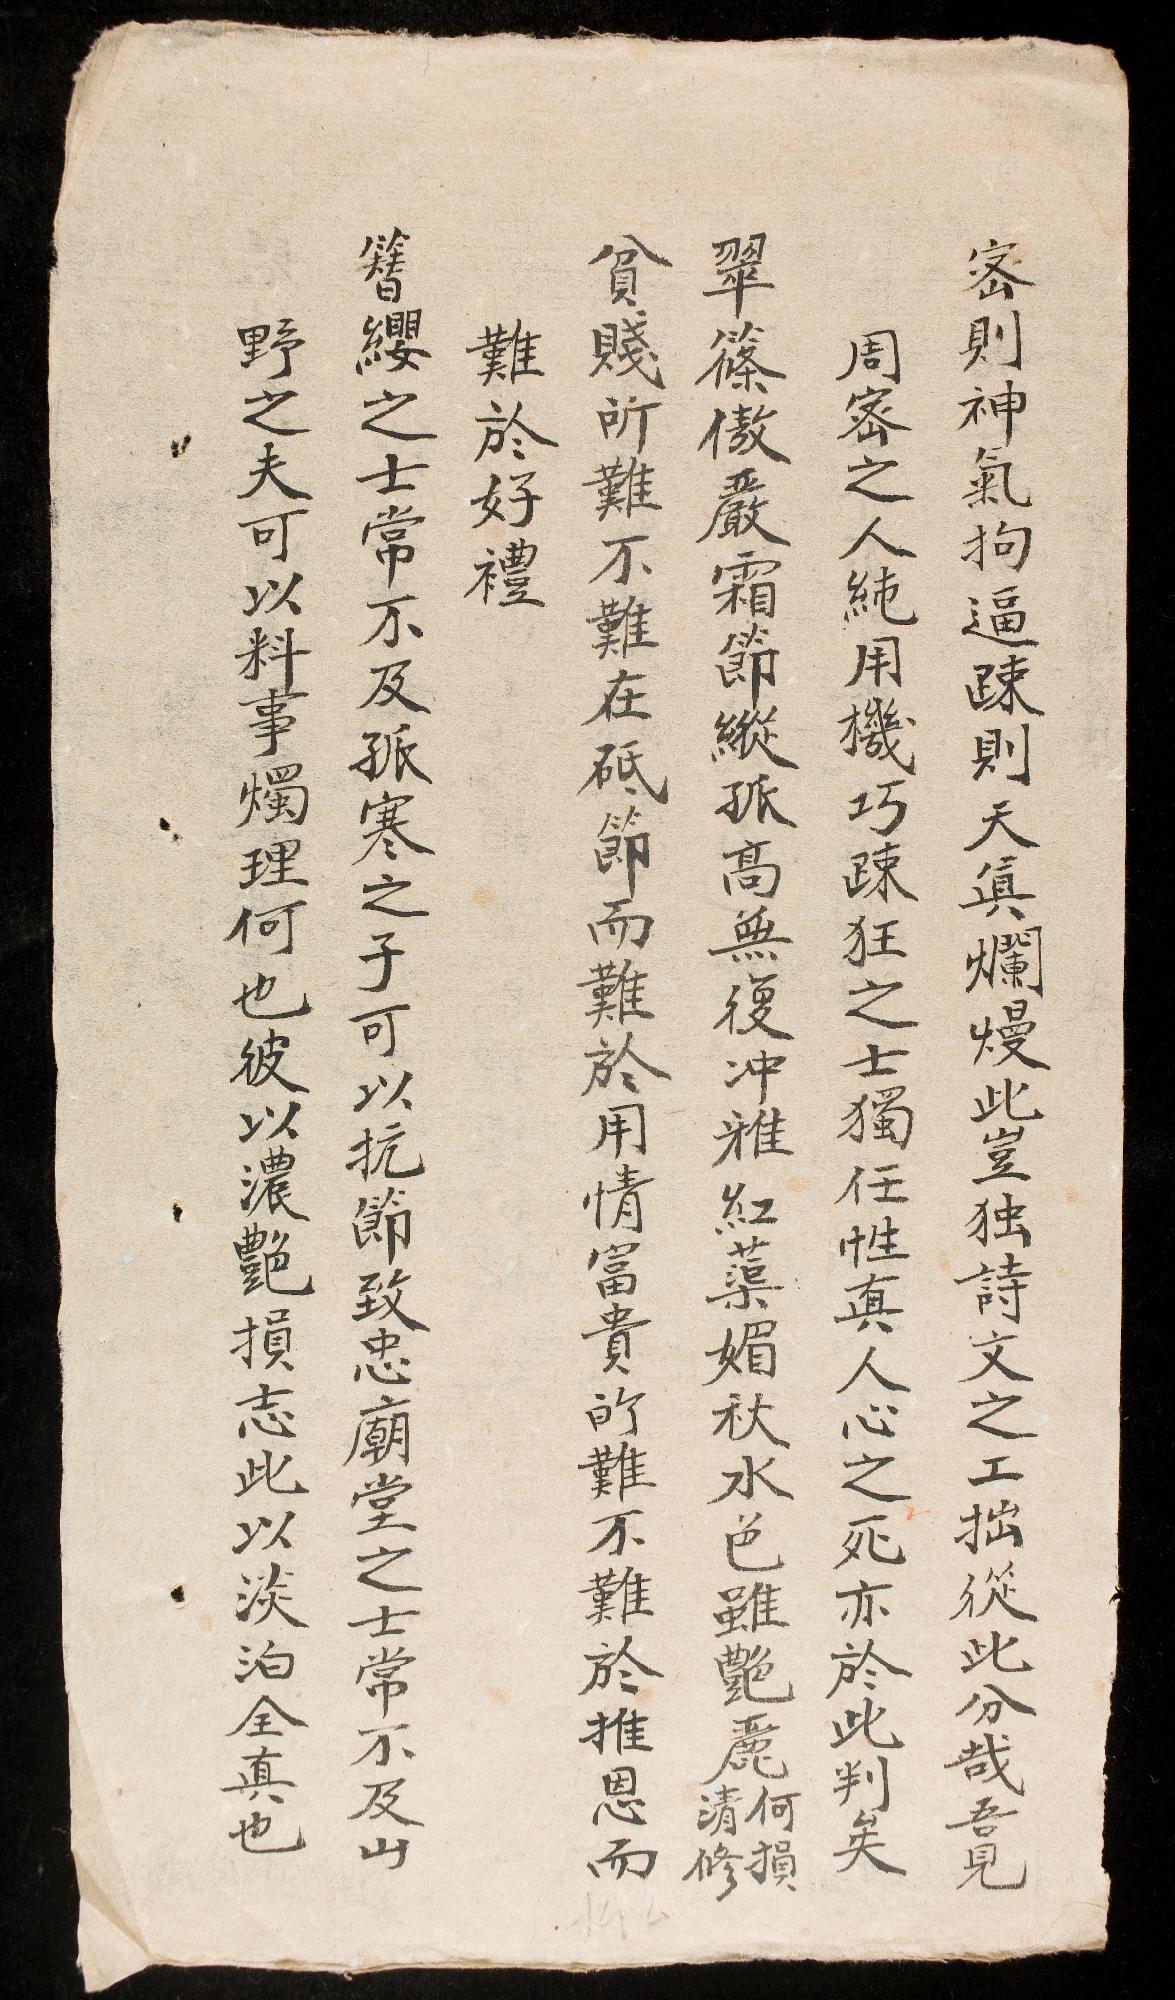 密則神氣拘逼踈則天真爛熳此豈独詩文之工拙從此分哉吾見
周密之人純用機巧踈狂之士獨任性真人心之死亦於此判矣
翠篠傲嚴霜節縱孤高無復冲雅紅蕖媚秋水色雖艷麗何損清修
貧賤所難不難在砥節而難於用情富貴的難不難於推恩而
難於好禮
簪纓之士常不及孤寒之子可以抗節致忠廟堂之士常不及山
野之夫可以料事燭理何也彼以濃艷損志此以淡泊全真也